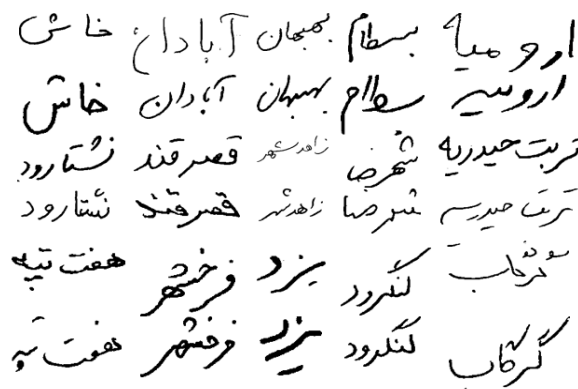 ارومیه بسطام بهبهان آبادان خاش
ارومیه بسطام بهبهان آبادان خاش
تربت حیدریه شهرضا زاهدشهر قصرقند نشتارود
تربت حیدریه شهرضا زاهدشهر قصرقند نشتارود
گرگاب لنگرود یزد فرخشهر هفت تپه
گرگاب لنگرود یزد فرخشهر هفت تپه